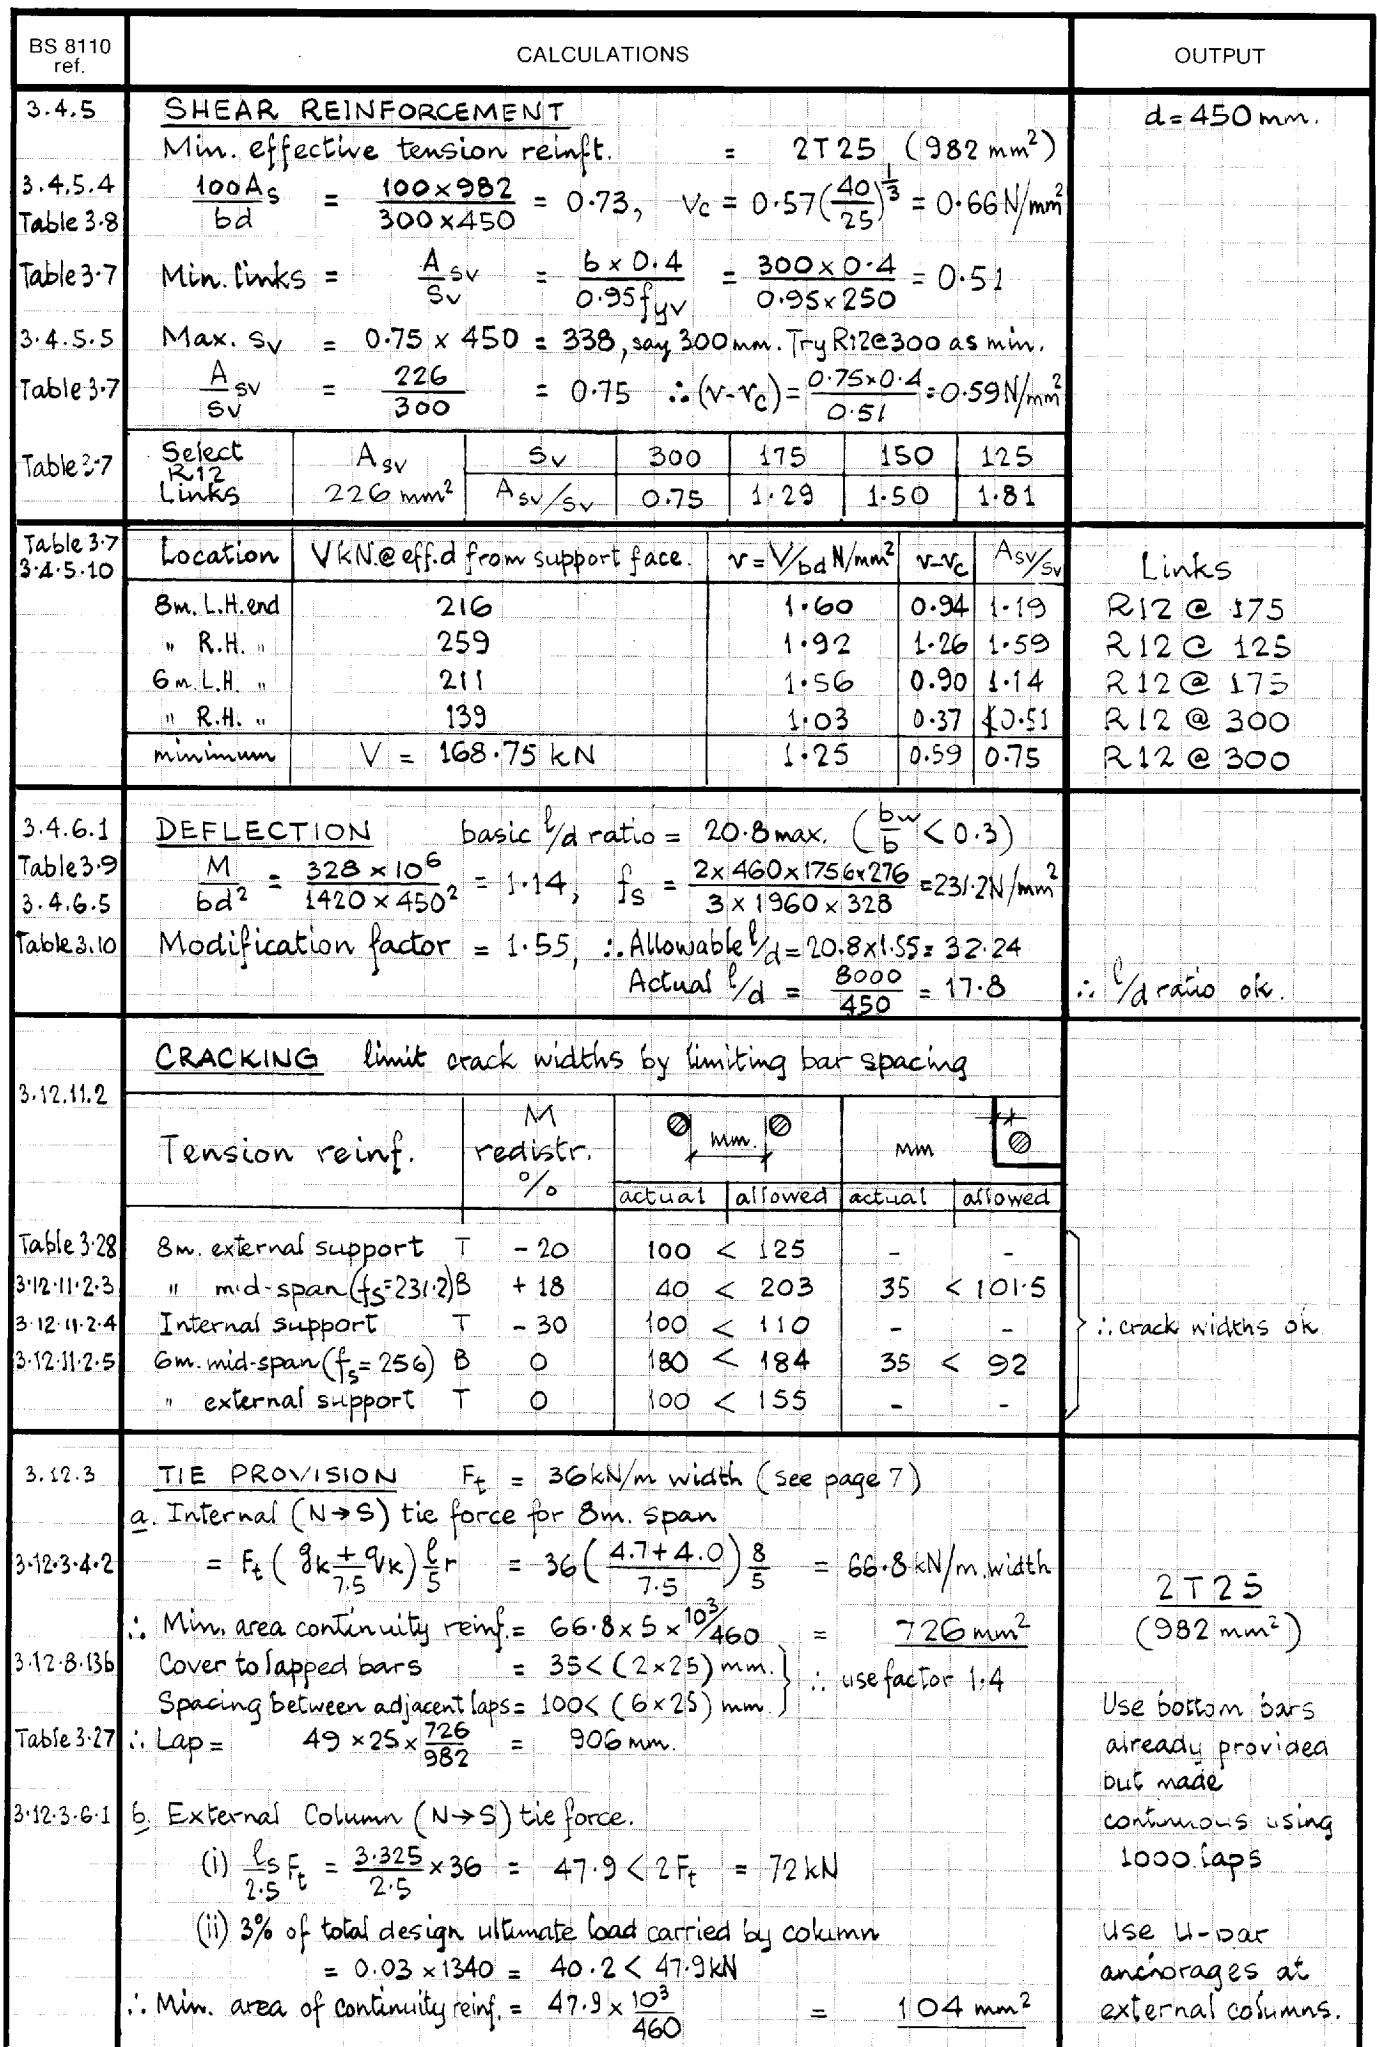 BS 8110 ref. CALCULATIONS OUTPUT
3.4.5 SHEAR REINFORCEMENT d = 450 mm.
Min. effective tension reinft. = 2T25 (982 mm²)
3.4.5.4 Table 3.8 100As/bd = 100×982/300×450 = 0.73, vc = 0.57(40/25)^1/3 = 0.66 N/mm²
Table 3.7 Min. links = Asv/Sv = b × 0.4/0.95fyv = 300 × 0.4/0.95 × 250 = 0.51
3.4.5.5 Max. Sv = 0.75 × 450 = 338, say 300 mm. Try R12@300 as min.
Table 3.7 Asv/Sv = 226/300 = 0.75 ∴ (v-vc) = 0.75×0.4/0.51 = 0.59 N/mm²
Table 3.7 Select R12 Links Asv Sv 300 175 150 125
226 mm² Asv/Sv 0.75 1.29 1.50 1.81
Table 3.7 3.4.5.10 Location V kN.@ eff. d from support face. v = V/bd N/mm² v-vc Asv/Sv Links
8m. L.H. end 216 1.60 0.94 1.19 R12 @ 175
" R.H. " 259 1.92 1.26 1.59 R12 @ 125
6m. L.H. " 211 1.56 0.90 1.14 R12 @ 175
" R.H. " 139 1.03 0.37 <0.51 R12 @ 300
minimum V = 168.75 kN 1.25 0.59 0.75 R12 @ 300
3.4.6.1 DEFLECTION basic l/d ratio = 20.8 max. (bw/b < 0.3)
Table 3.9 3.4.6.5 M/bd² = 328 × 10⁶/1420 × 450² = 1.14, fs = 2×460×1756×276/3×1960×328 = 231.2 N/mm²
Table 3.10 Modification factor = 1.55, ∴ Allowable l/d = 20.8×1.55 = 32.24
Actual l/d = 8000/450 = 17.8 ∴ l/d ratio ok.
CRACKING limit crack widths by limiting bar spacing
3.12.11.2
Tension reinf. M redistr. % mm. mm
actual allowed actual allowed
Table 3.28 8m. external support T - 20 100 < 125 - -
3.12.11.2.3 " mid-span (fs=231.2) B + 18 40 < 203 35 < 101.5
3.12.11.2.4 Internal support T - 30 100 < 110 - - ∴ crack widths ok
3.12.11.2.5 6m. mid-span (fs = 256) B 0 180 < 184 35 < 92
" external support T 0 100 < 155 - -
3.12.3 TIE PROVISION Ft = 36 kN/m width (see page 7)
a. Internal (N→S) tie force for 8m. span
3.12.3.4.2 = Ft (gk + qk/7.5) l/5 r = 36 (4.7+4.0/7.5) 8/5 = 66.8 kN/m. width
∴ Min. area continuity reinf. = 66.8 × 5 × 10³/460 = 726 mm²
2T25
(982 mm²)
3.12.8.13b Cover to lapped bars = 35 < (2×25) mm. } ∴ use factor 1.4
Spacing between adjacent laps = 100 < (6×25) mm.
Table 3.27 ∴ Lap = 49 × 25 × 726/982 = 906 mm.
Use bottom bars
already provided
but made
continuous using
1000 laps
3.12.3.6.1 b. External Column (N→S) tie force.
(i) ls/2.5 Ft = 3.325/2.5 × 36 = 47.9 < 2Ft = 72 kN
(ii) 3% of total design ultimate load carried by column
= 0.03 × 1340 = 40.2 < 47.9 kN
∴ Min. area of continuity reinf. = 47.9 × 10³/460 = 104 mm²
Use U-bar
anchorages at
external columns.